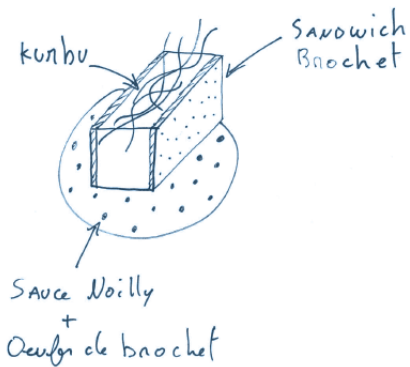 Kunbu
SANDWICH
Brochet
SAUCE Noilly
+
Oeufs de brochet